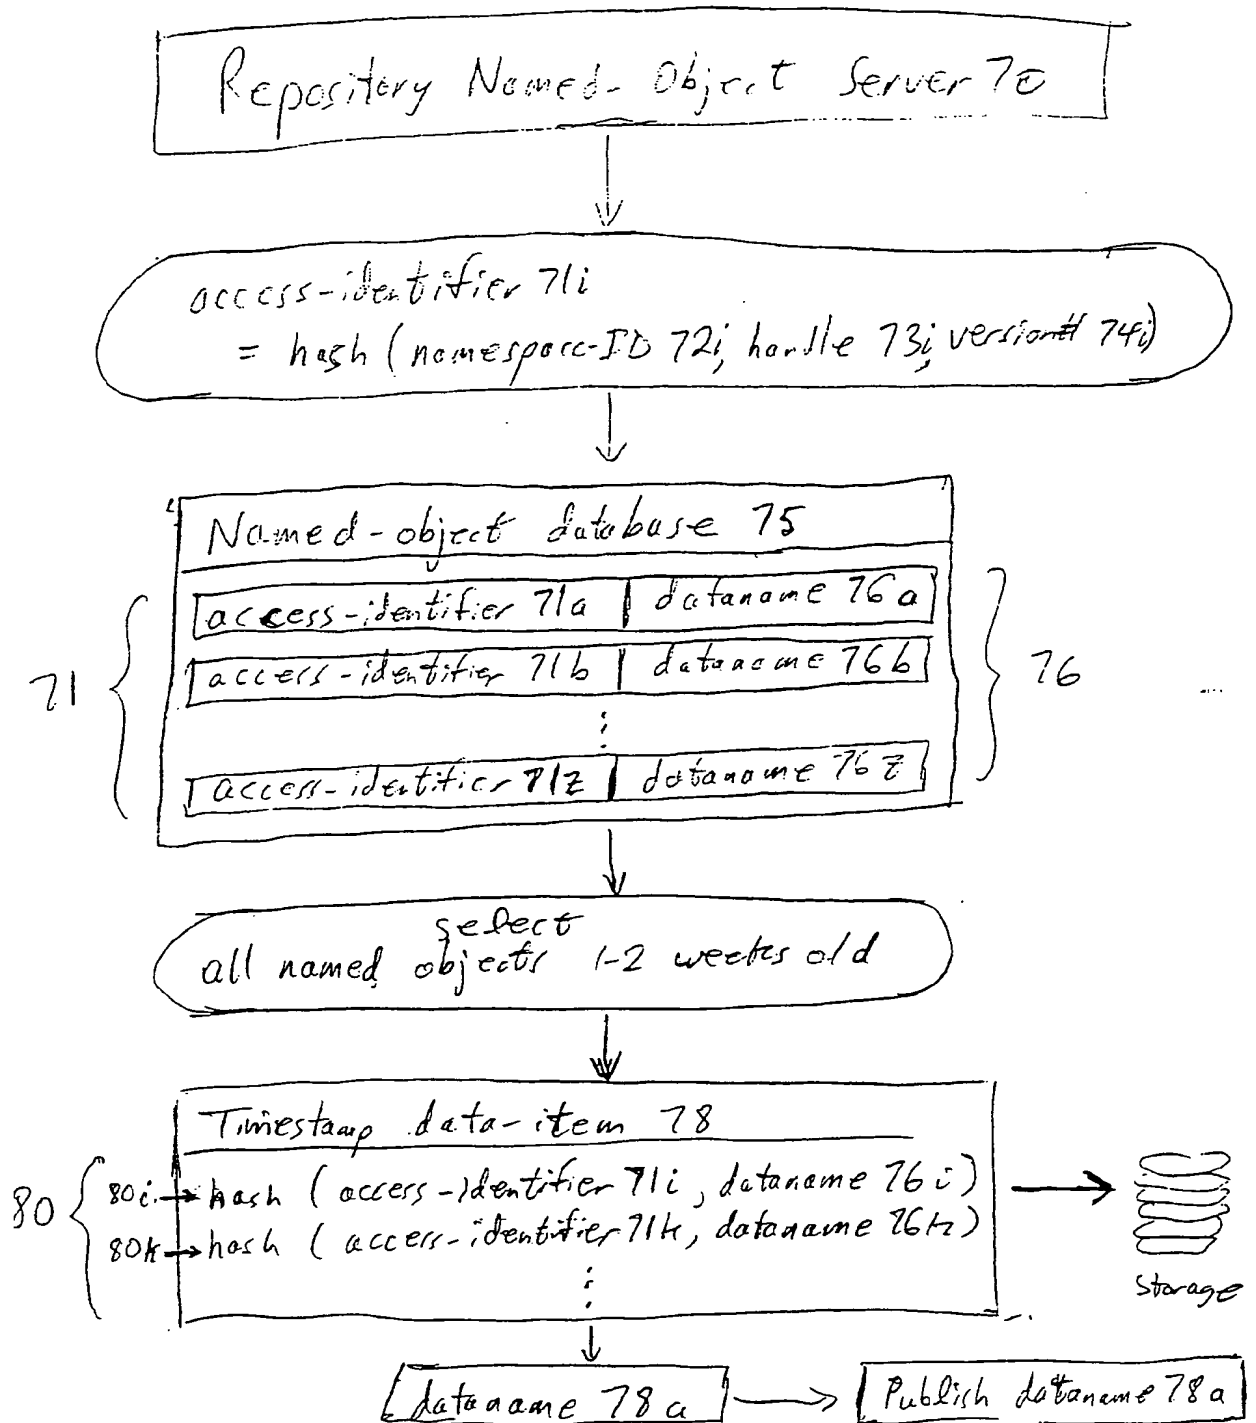 Repository Named-Object Server 70
access-identifier 71i
= hash (namespace-ID 72i, handle 73i, version# 74i)
Named-object database 75
access-identifier 71a | dataname 76a
access-identifier 71b | dataname 76b
71
76
...
access-identifier 71z | dataname 76z
select
all named objects 1-2 weeks old
Timestamp data-item 78
80
80i → hash (access-identifier 71i, dataname 76i)
80k → hash (access-identifier 71k, dataname 76k)
Storage
dataname 78a
Publish dataname 78a